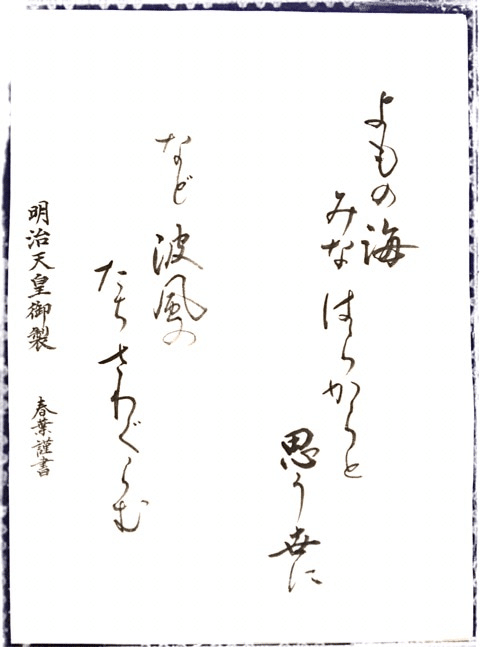 よもの海
みな はらからと
思う世に
など 波風の
たちさわぐらむ
明治天皇御製 春葉謹書